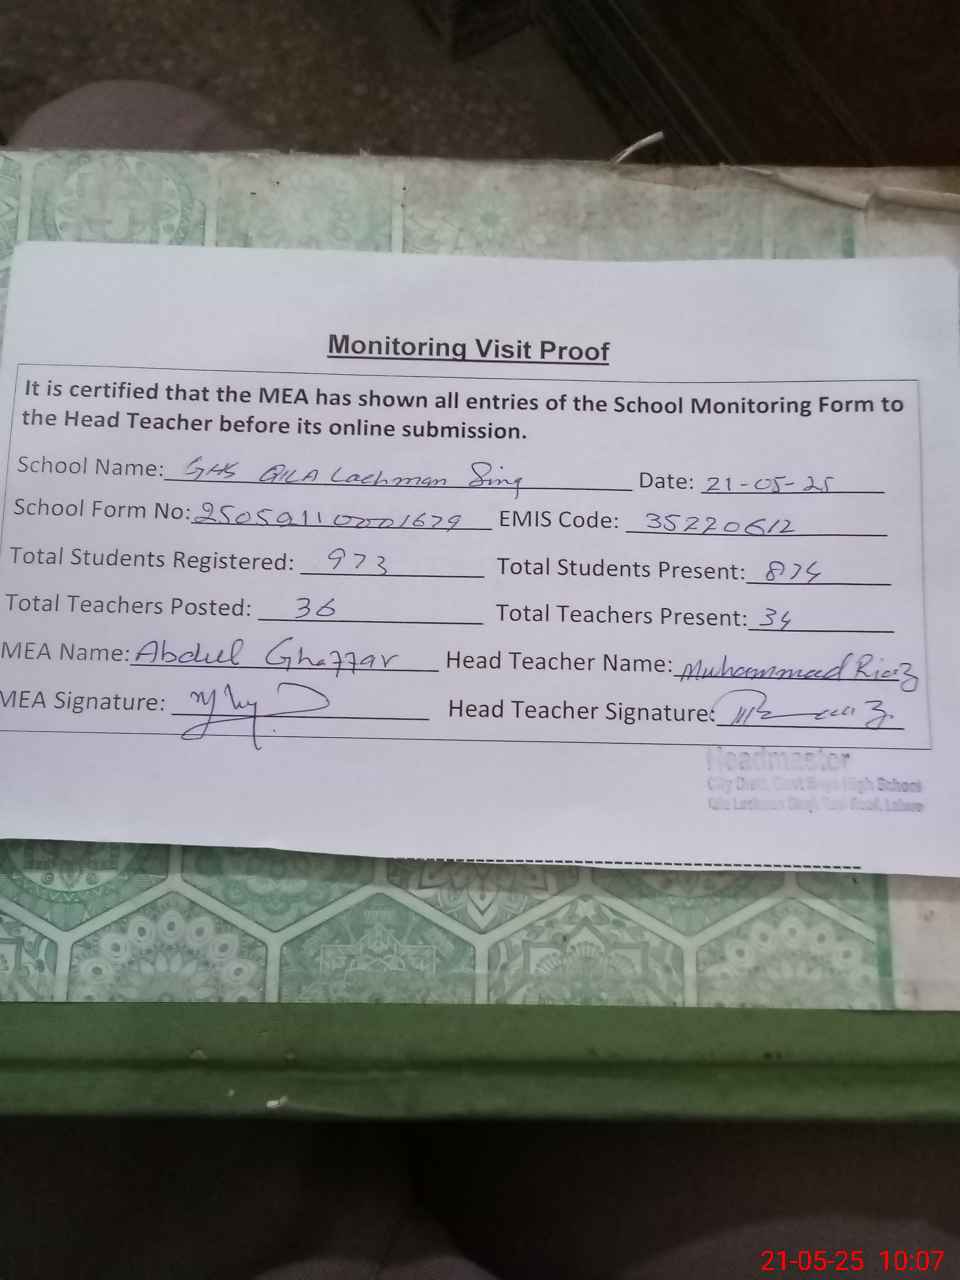 Monitoring Visit Proof
It is certified that the MEA has shown all entries of the School Monitoring Form to
the Head Teacher before its online submission.
School Name: GHS QILA Lachman Sing Date: 21-05-25
School Form No: EMIS Code: 35220612
Total Students Registered: 973 Total Students Present: 874
Total Teachers Posted: 36 Total Teachers Present: 34
MEA Name: Abdul Ghaffar Head Teacher Name: Muhammad Riaz
MEA Signature: Head Teacher Signature:
Headmaster
City Distt. Govt Boys High School
Qila Lachman Singh Ravi Road, Lahore
21-05-25 10:07